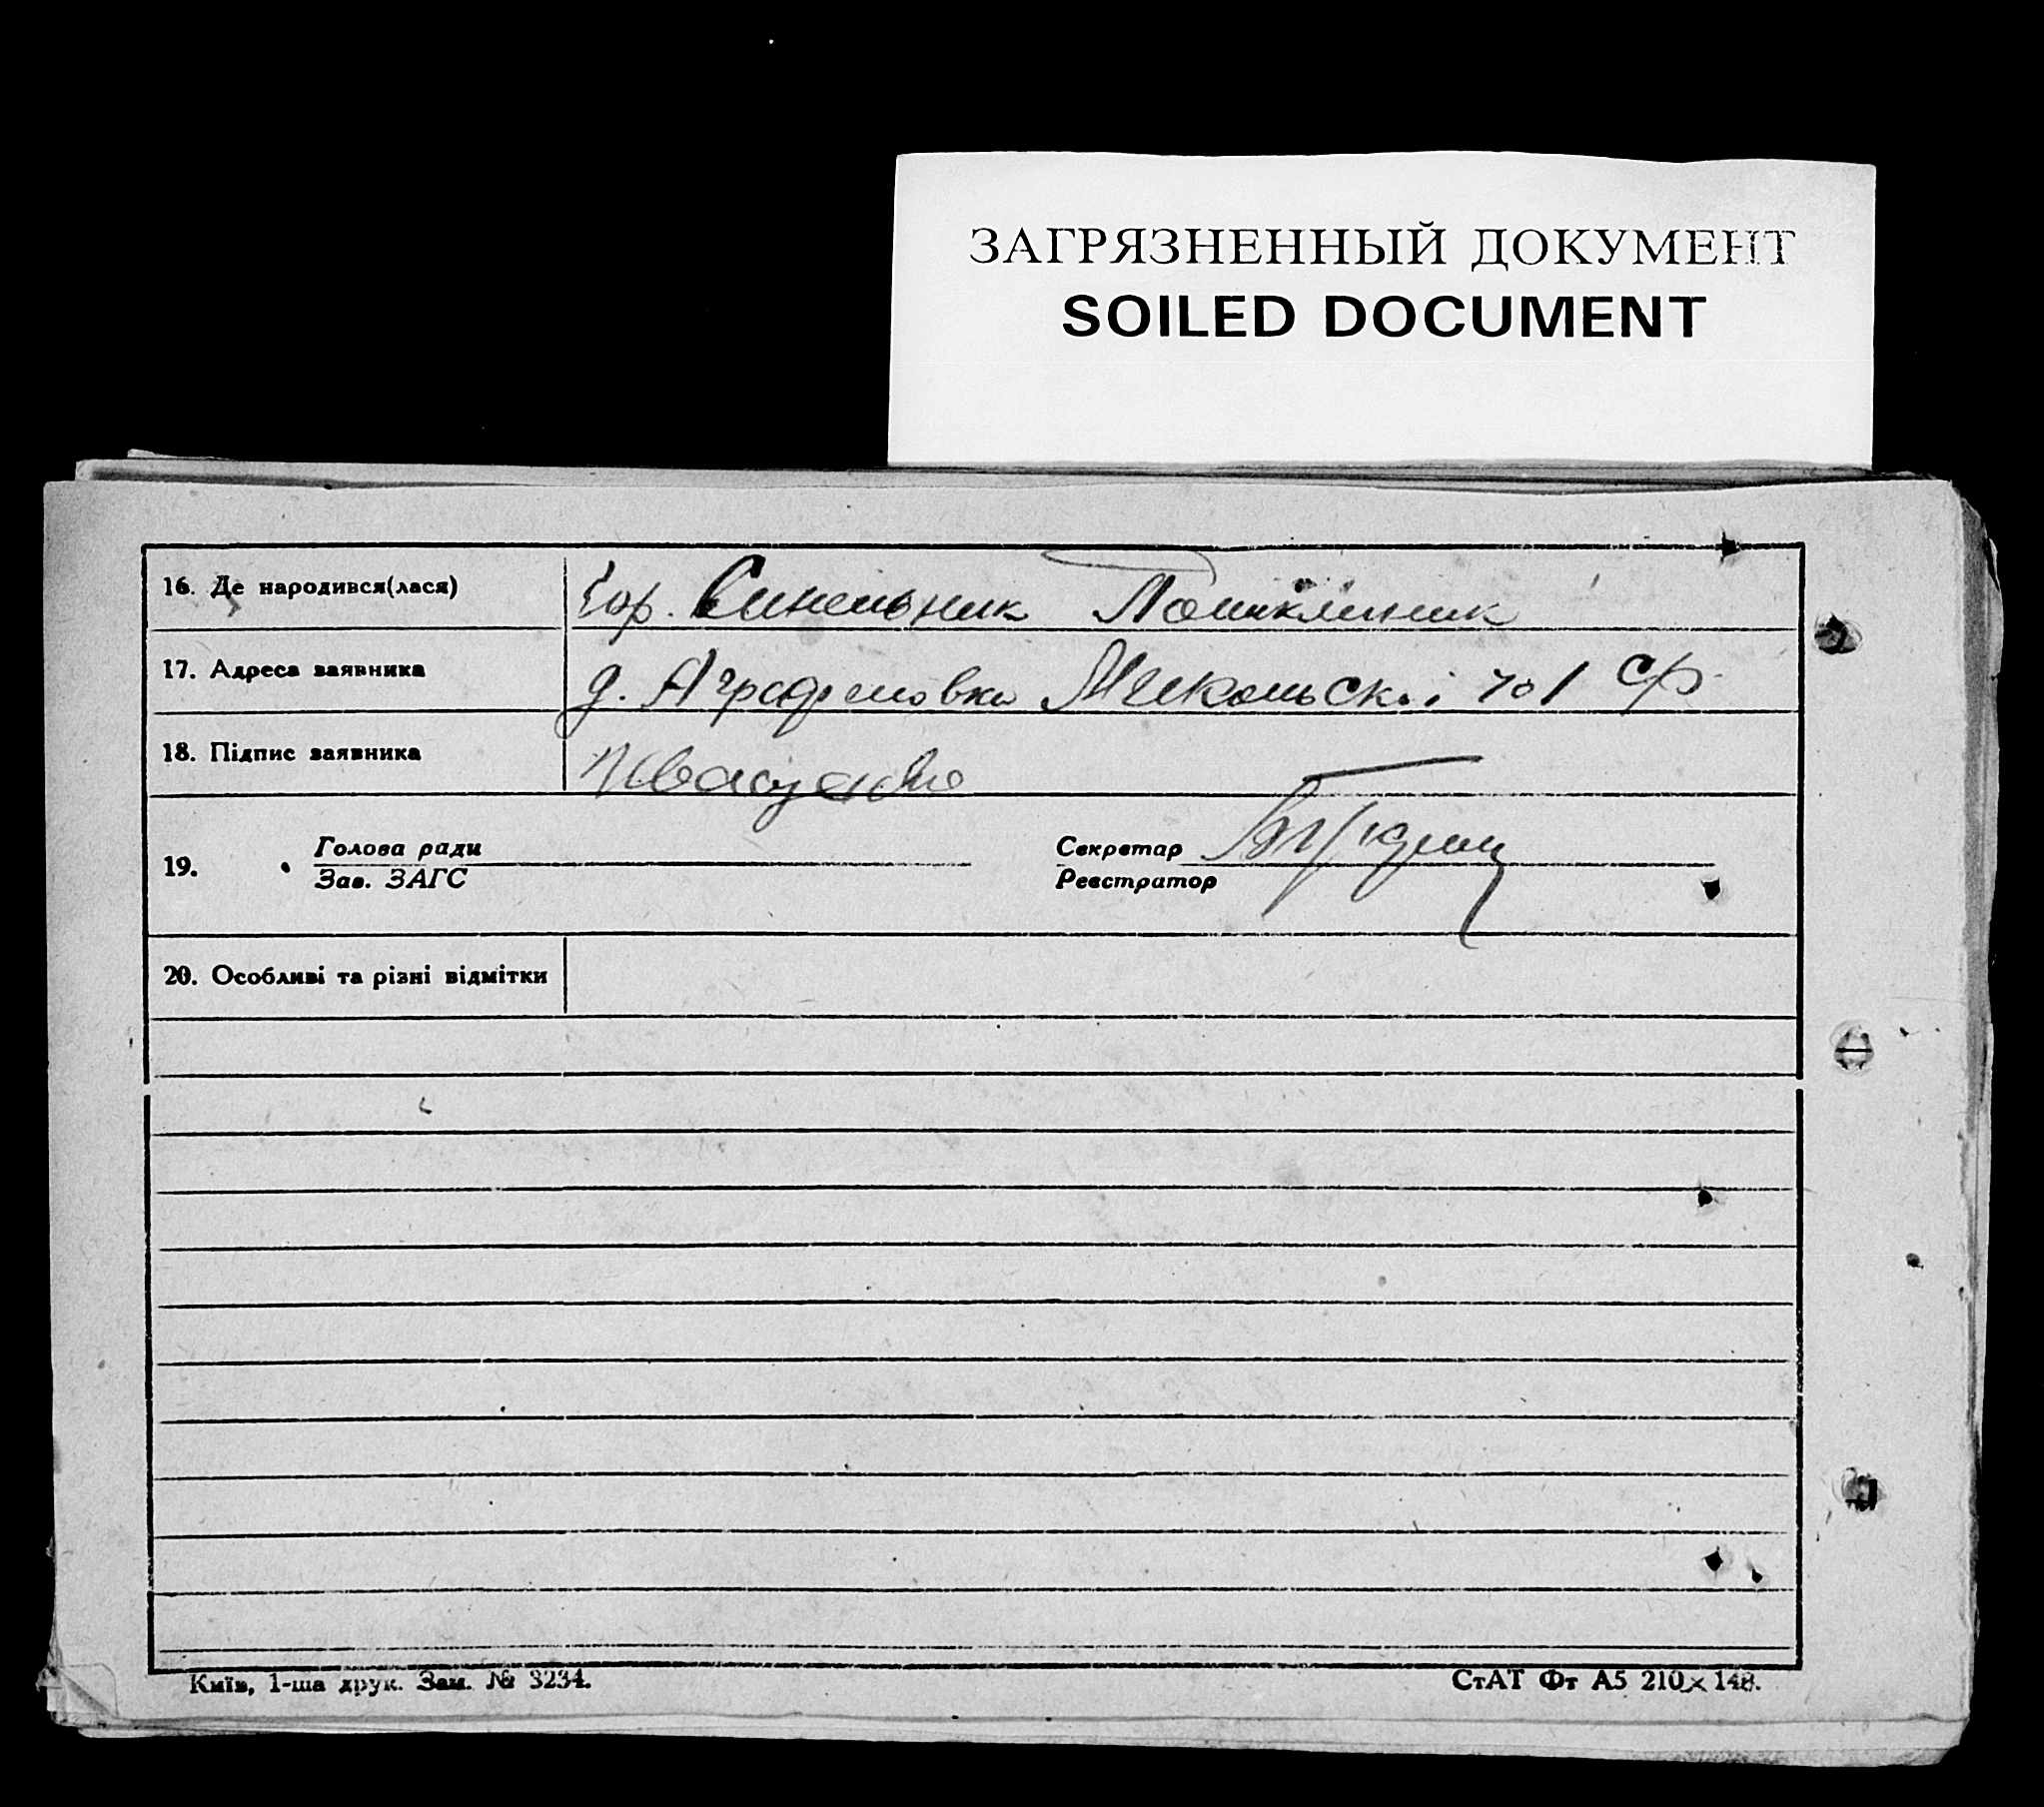 ЗАГРЯЗНЕННЫЙ ДОКУМЕНТ
SOILED DOCUMENT
16. Де народився(лася) гор. Синельник Поликлиник
17. Адреса заявника д. Аграфеновка
18. Підпис заявника
19. Голова ради Секретар
Зав. ЗАГС Реєстратор
20. Особливі та різні відмітки
Київ, 1-ша друк. Зам. № 3234. СтАТ Фт А5 210×148.